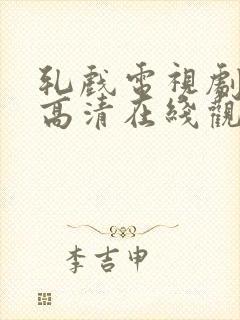 乳戲電視劇
高清在綫觀
李吉申